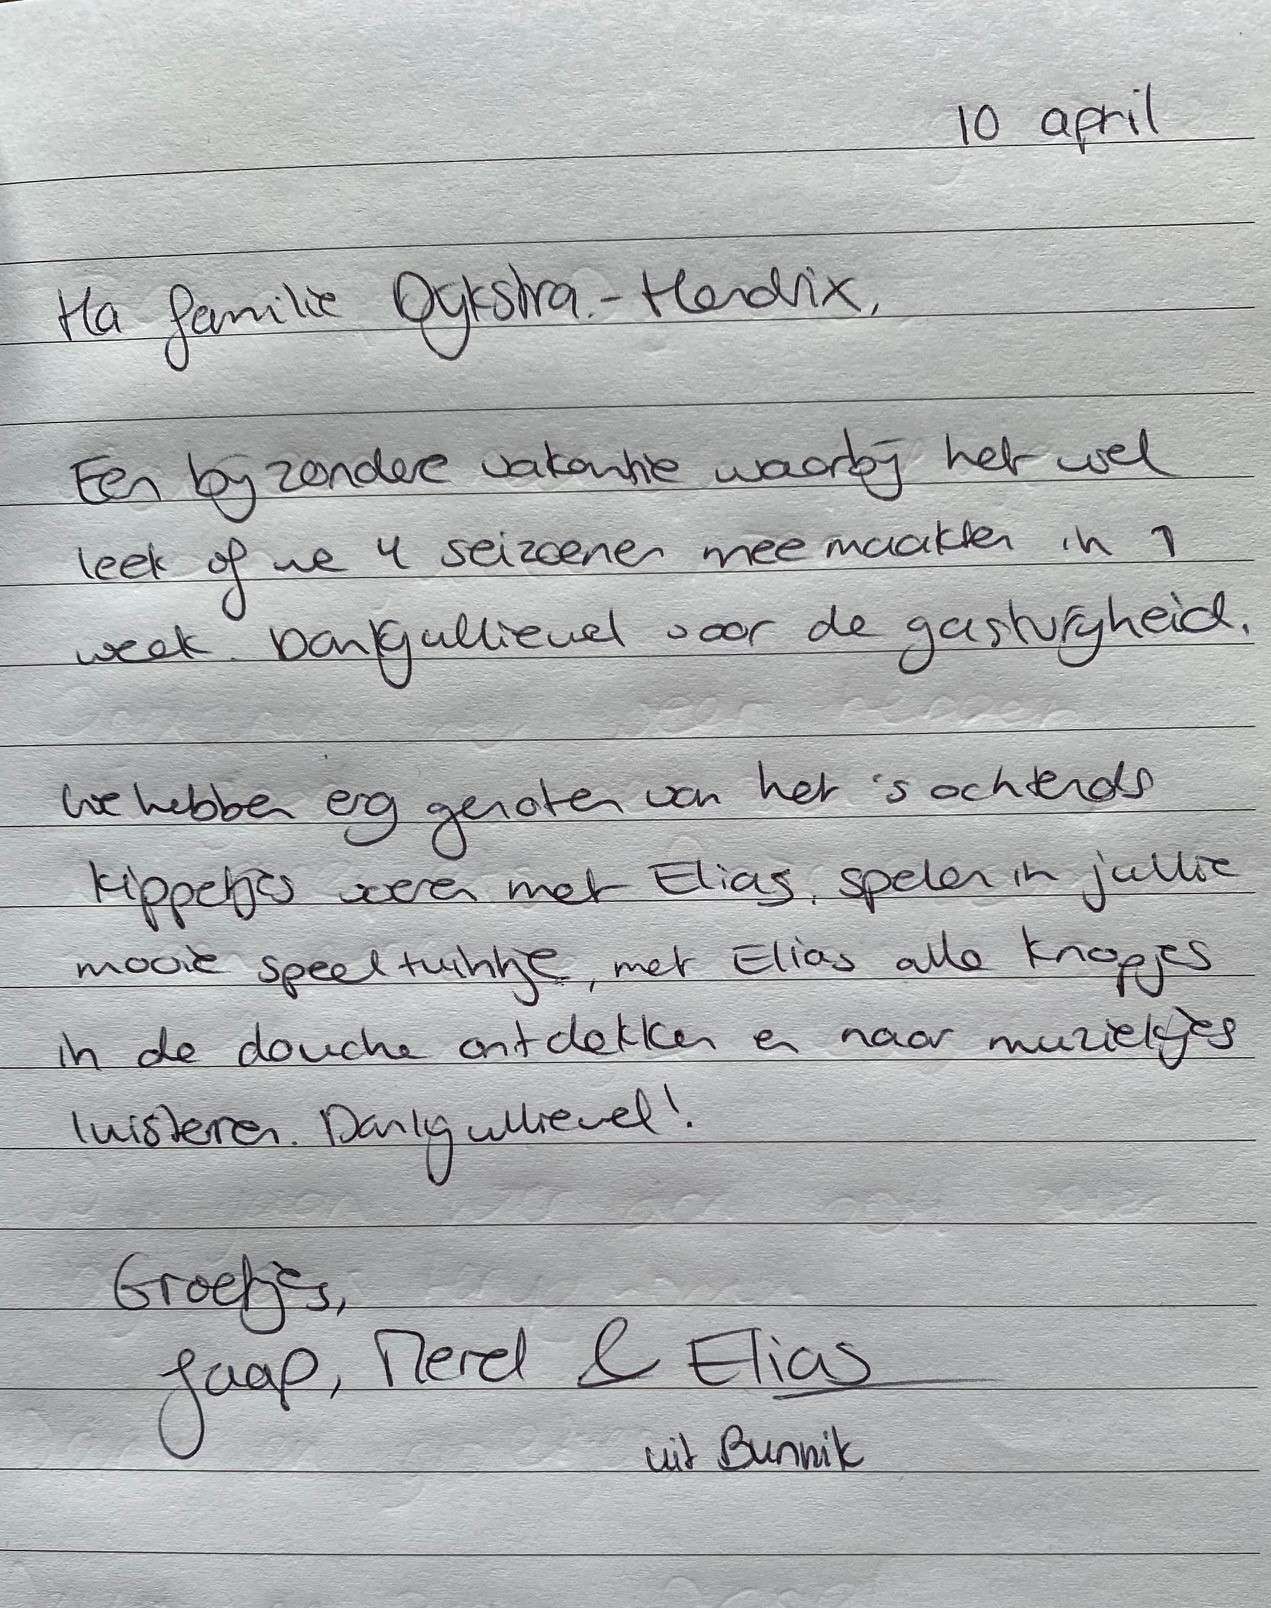 10 april
Ha familie Dijkstra - Hendrix,
Een bijzondere vakantie waarbij het wel
leek of we 4 seizoenen meemaakten in 1
week. Dankjulliewel voor de gastvrijheid.
We hebben erg genoten van het 's ochtends
kippetjes voeren met Elias, spelen in jullie
mooie speeltuintje, met Elias alle knopjes
in de douche ontdekken en naar muziekjes
luisteren. Dankjulliewel!
Groetjes,
Jaap, Merel & Elias
uit Bunnik